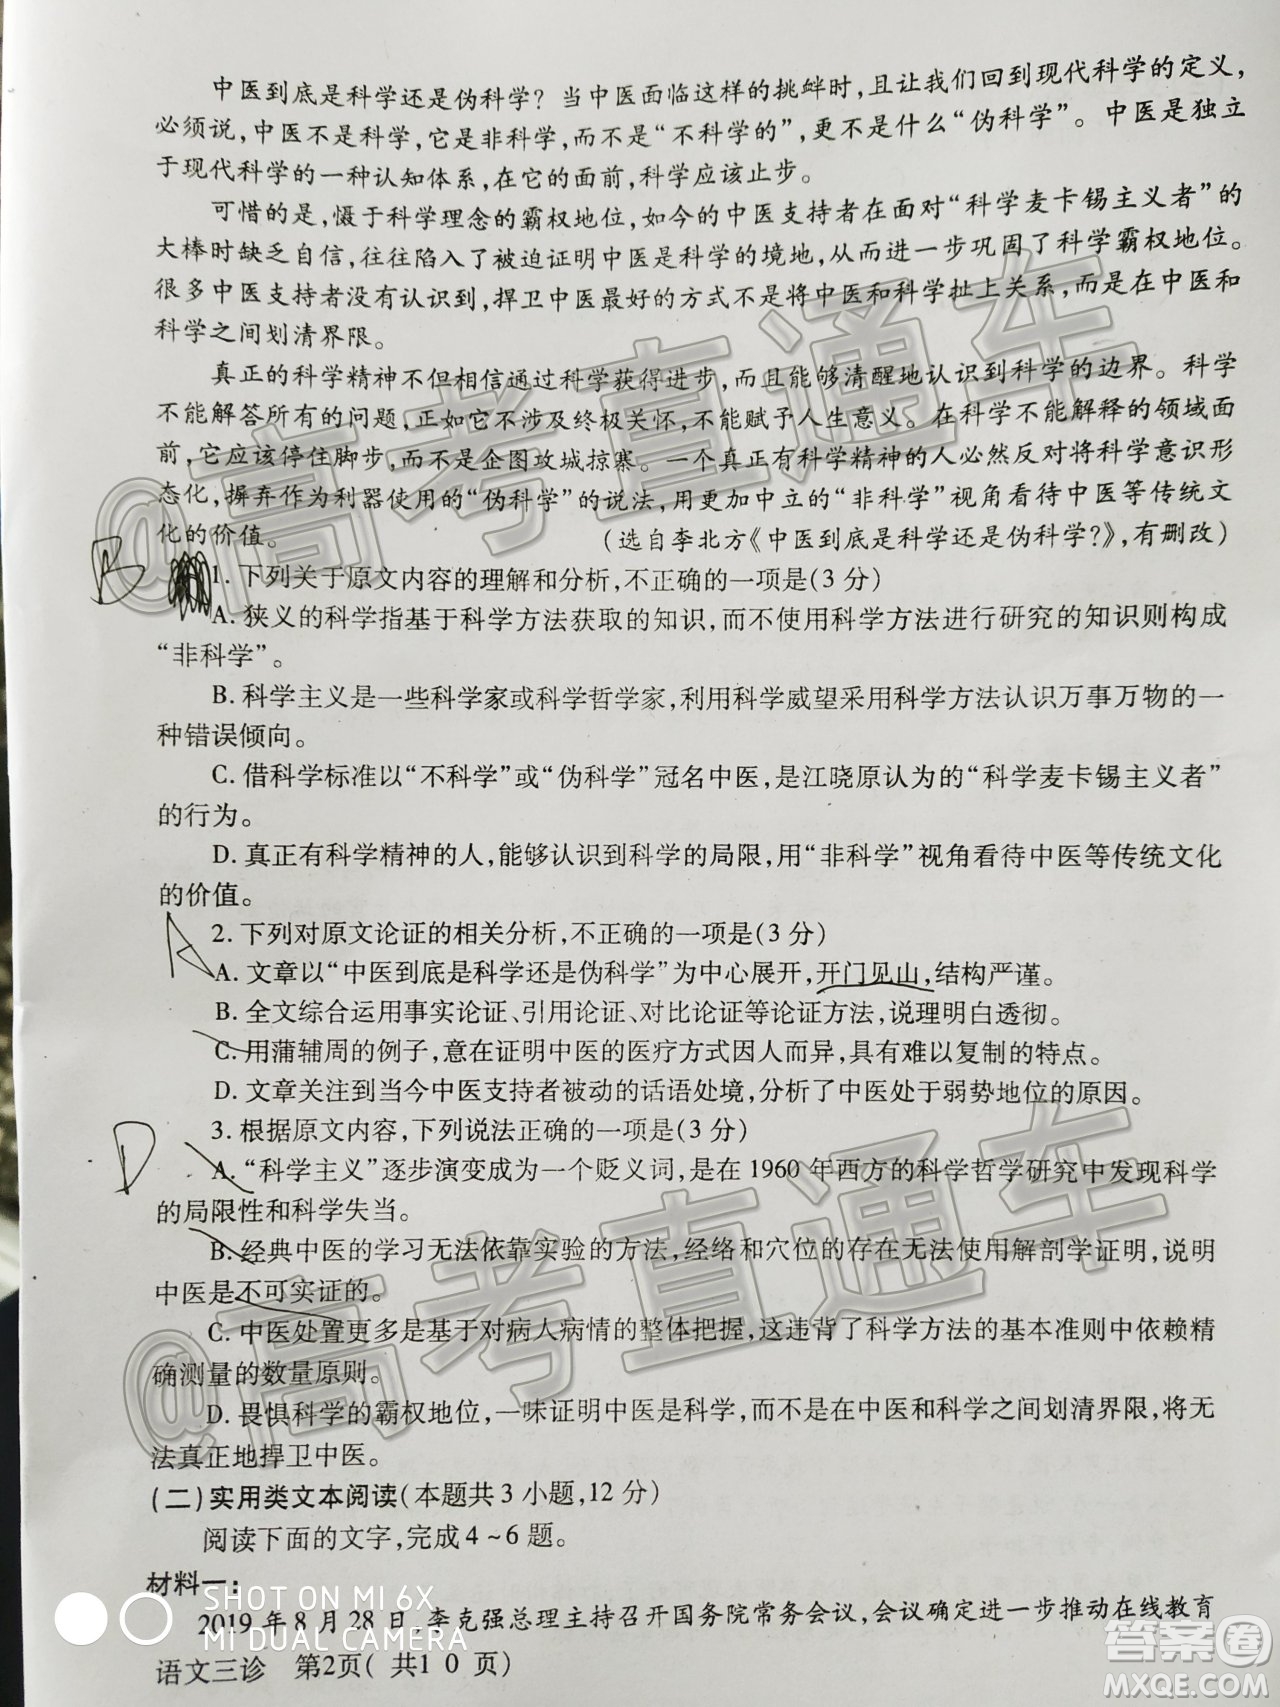 中医到底是科学还是伪科学？当中医面临这样的挑衅时，且让我们回到现代科学的定义，
必须说，中医不是科学，它是非科学，而不是“不科学的”，更不是什么“伪科学”。中医是独立
于现代科学的一种认知体系，在它的面前，科学应该止步。
可惜的是，慑于科学理念的霸权地位，如今的中医支持者在面对“科学麦卡锡主义者”的
大棒时缺乏自信，往往陷入了被迫证明中医是科学的境地，从而进一步巩固了科学霸权地位。
很多中医支持者没有认识到，捍卫中医最好的方式不是将中医和科学扯上关系，而是在中医和
科学之间划清界限。
真正的科学精神不但相信通过科学获得进步，而且能够清醒地认识到科学的边界。科学
不能解答所有的问题，正如它不涉及终极关怀，不能赋予人生意义。在科学不能解释的领域面
前，它应该停住脚步，而不是企图攻城掠寨。一个真正有科学精神的人必然反对将科学意识形
态化，摒弃作为利器使用的“伪科学”的说法，用更加中立的“非科学”视角看待中医等传统文
化的价值。
（选自李北方《中医到底是科学还是伪科学？》，有删改）
B
1. 下列关于原文内容的理解和分析，不正确的一项是（3 分）
A. 狭义的科学指基于科学方法获取的知识，而不使用科学方法进行研究的知识则构成
“非科学”。
B. 科学主义是一些科学家或科学哲学家，利用科学威望采用科学方法认识万事万物的一
种错误倾向。
C. 借科学标准以“不科学”或“伪科学”冠名中医，是江晓原认为的“科学麦卡锡主义者”
的行为。
D. 真正有科学精神的人，能够认识到科学的局限，用“非科学”视角看待中医等传统文化
的价值。
A
2. 下列对原文论证的相关分析，不正确的一项是（3 分）
A. 文章以“中医到底是科学还是伪科学”为中心展开，开门见山，结构严谨。
B. 全文综合运用事实论证、引用论证、对比论证等论证方法，说理明白透彻。
C. 用蒲辅周的例子，意在证明中医的医疗方式因人而异，具有难以复制的特点。
D. 文章关注到当今中医支持者被动的话语处境，分析了中医处于弱势地位的原因。
D
3. 根据原文内容，下列说法正确的一项是（3 分）
A. “科学主义”逐步演变成为一个贬义词，是在 1960 年西方的科学哲学研究中发现科学
的局限性和科学失当。
B. 经典中医的学习无法依靠实验的方法，经络和穴位的存在无法使用解剖学证明，说明
中医是不可实证的。
C. 中医处置更多是基于对病人病情的整体把握，这违背了科学方法的基本准则中依赖精
确测量的数量原则。
D. 畏惧科学的霸权地位，一味证明中医是科学，而不是在中医和科学之间划清界限，将无
法真正地捍卫中医。
（二）实用类文本阅读（本题共 3 小题，12 分）
阅读下面的文字，完成 4～6 题。
材料一：
2019 年 8 月 28 日，李克强总理主持召开国务院常务会议，会议确定进一步推动在线教育
语文三诊 第2页（共10页）
SHOT ON MI 6X
MI DUAL CAMERA
@高考直通车
@高考直通车
答案圈
MXQE.COM